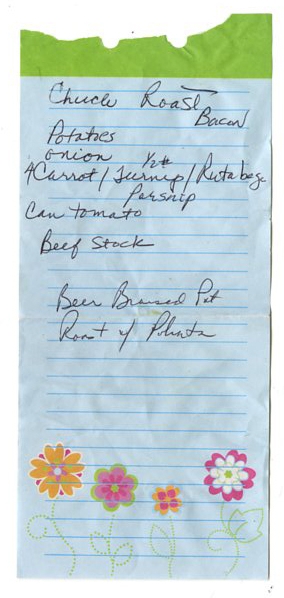 Chuck Roast
Bacon
Potatoes
onion
1/2#
4 Carrot / Turnip / Rutabega
Parsnip
Can tomato
Beef Stock
Beer Braised Pot
Roast w/ Polenta